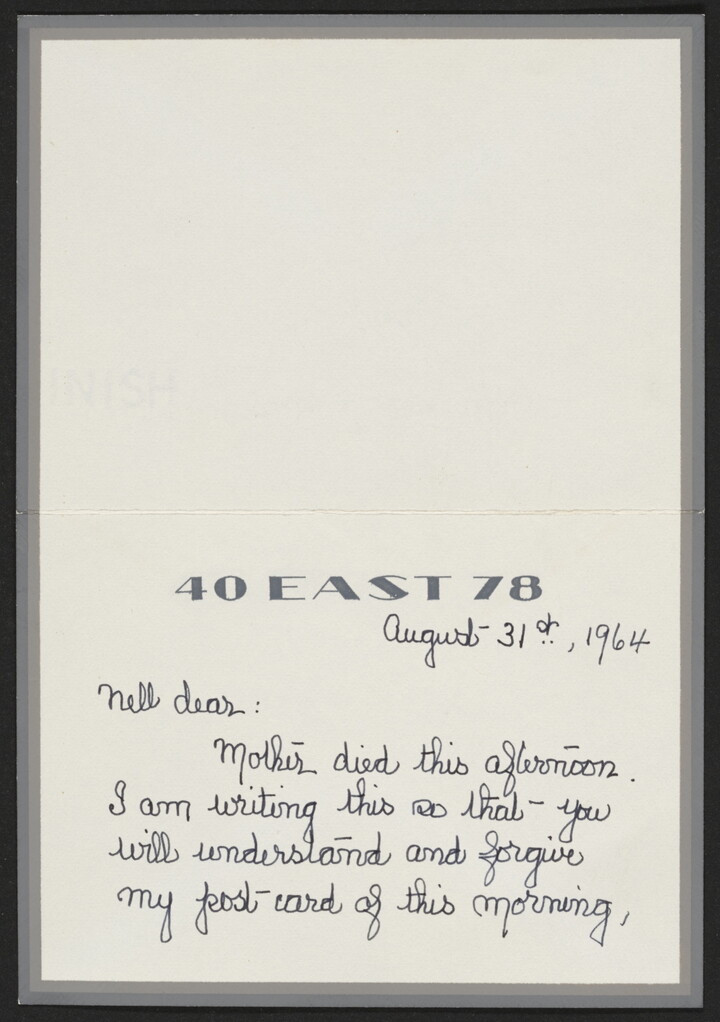 40 EAST 78
August 31st, 1964
Nell dear:
Mother died this afternoon.
I am writing this so that you
will understand and forgive
my post-card of this morning,